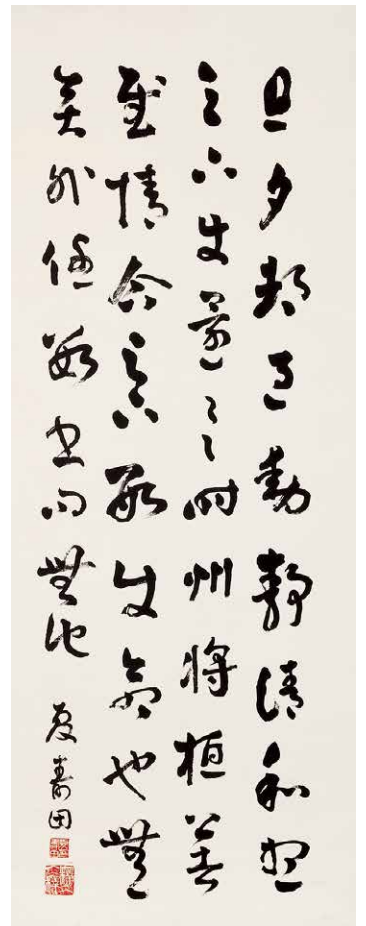 旦夕都邑動靜清和想
足下使還一一時州將桓公告
慰情企足下數使命也無
奕外任數書問無他
夏壽田